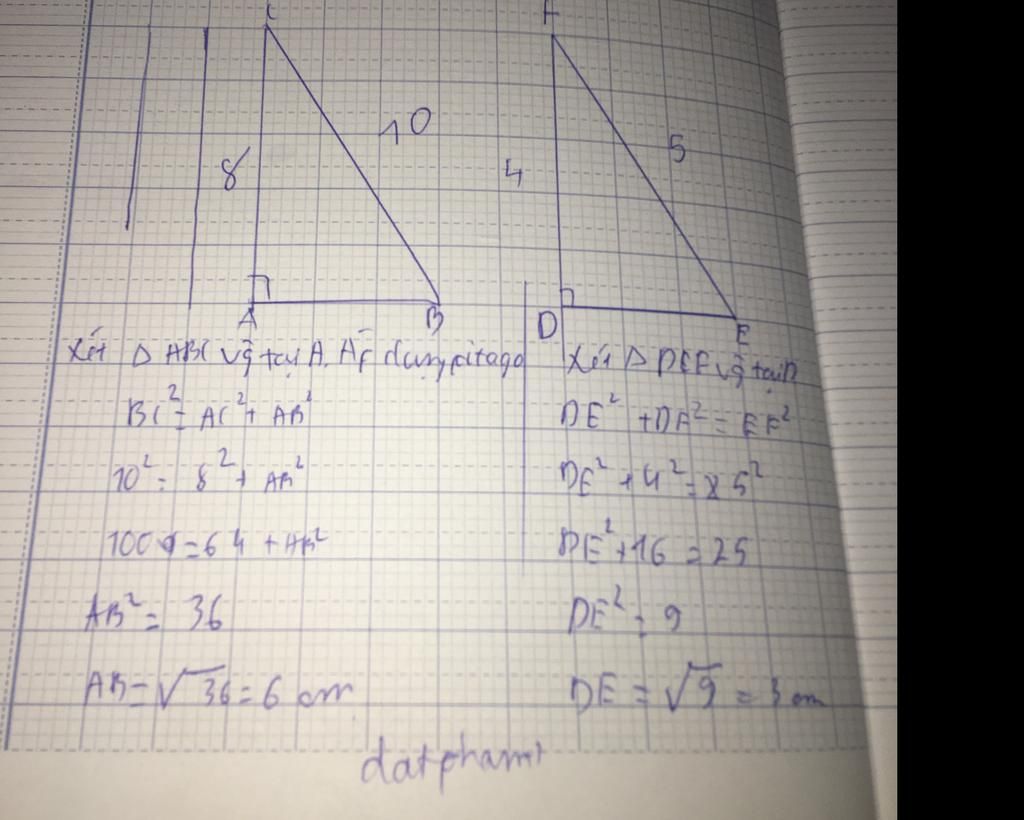 C
F
8
10
4
5
A
B
D
E
Xét Δ ABC vg tại A. Áp dụng pitago
BC² = AC² + AB²
10² = 8² + AB²
100 = 64 + AB²
AB² = 36
AB = √36 = 6 cm
Xét Δ DEF vg tại D
DE² + DF² = EF²
DE² + 4² = 5²
DE² + 16 = 25
DE² = 9
DE = √9 = 3 cm
datphamt